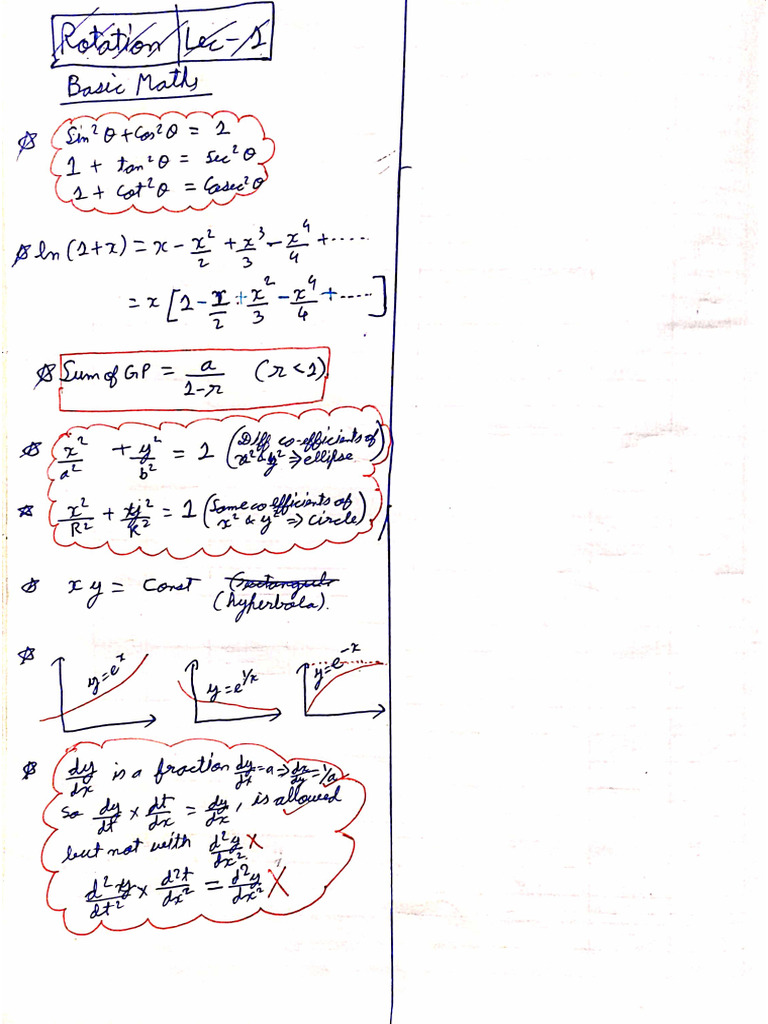 Rotation | Lec-1
Basic Maths
Sin²θ + Cos²θ = 1
1 + tan²θ = Sec²θ
1 + Cot²θ = Cosec²θ
ln(1+x) = x - x²/2 + x³/3 - x⁴/4 + .....
= x [1 - x/2 + x²/3 - x⁴/4 + .....]
Sum of GP = a/(1-r) (r < 1)
x²/a² + y²/b² = 1 (Diff co-efficients of
x² & y² ⇒ ellipse)
x²/R² + y²/R² = 1 (Same coefficients of
x² & y² ⇒ circle)
xy = Const (rectangular
(hyperbola).
y=eˣ y=e^1/x y=e^-x
dy/dx is a fraction dy/dx = a ⇒ dx/dy = 1/a
So dy/dt × dt/dx = dy/dx, is allowed
but not with d²y/dx² ×
d²y/dt² × d²t/dx² = d²y/dx² ×